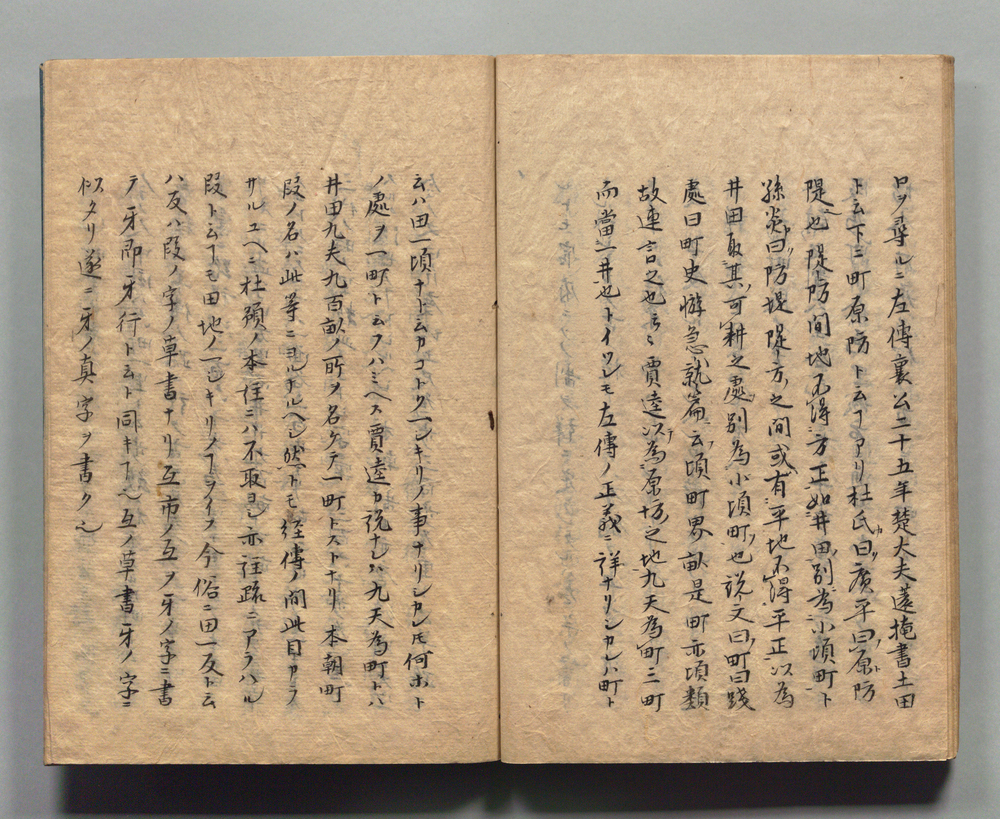 ロヲ尋ルニ左傳襄公二十五年楚大夫薳掩書土田
ト云下ニ町原防ト云フアリ杜氏曰廣平曰原防
隄也隄防間地不得方正如井田別為小頃町ト
孫炎曰防堤隄方之間或有平地不得平正以為
井田取其可耕之處別為小頃町也説文曰町曰踐
處曰町史游急就篇云頃町界畝是町亦頃類
故連言之也ト云賈逵以為原坊之地九夫為町三町
而當一井也トイヘレモ左傳ノ正義ニ詳ナリシカレハ町ト
云ハ田一頃ナト云カコトク一シキリノ事ナリシカレモ何ホト
ノ處ヲ一町ト云フハミヘス賈逵カ説ナレハ九夫為町トハ
井田九夫九百畝ノ所ヲ名ケテ一町トストナリ本朝町
段ノ名ハ此等ニヨルナルヘシ然トモ経傳ノ間此目カラ
サルユヘニ杜預ノ本注ニハ不取ヨシ亦注疏ニアラハル
段ト云フモ田地ノ一シキリノフライフ今俗ニ田一反ト云
ハ反ハ段ノ字ノ草書ナリ互市ノ互ヲ牙ノ字ニ書
テ牙郎牙行ト云ト同キフ也互ノ草書牙ノ字ニ
似タリ遂ニ牙ノ真字ヲ書ク也